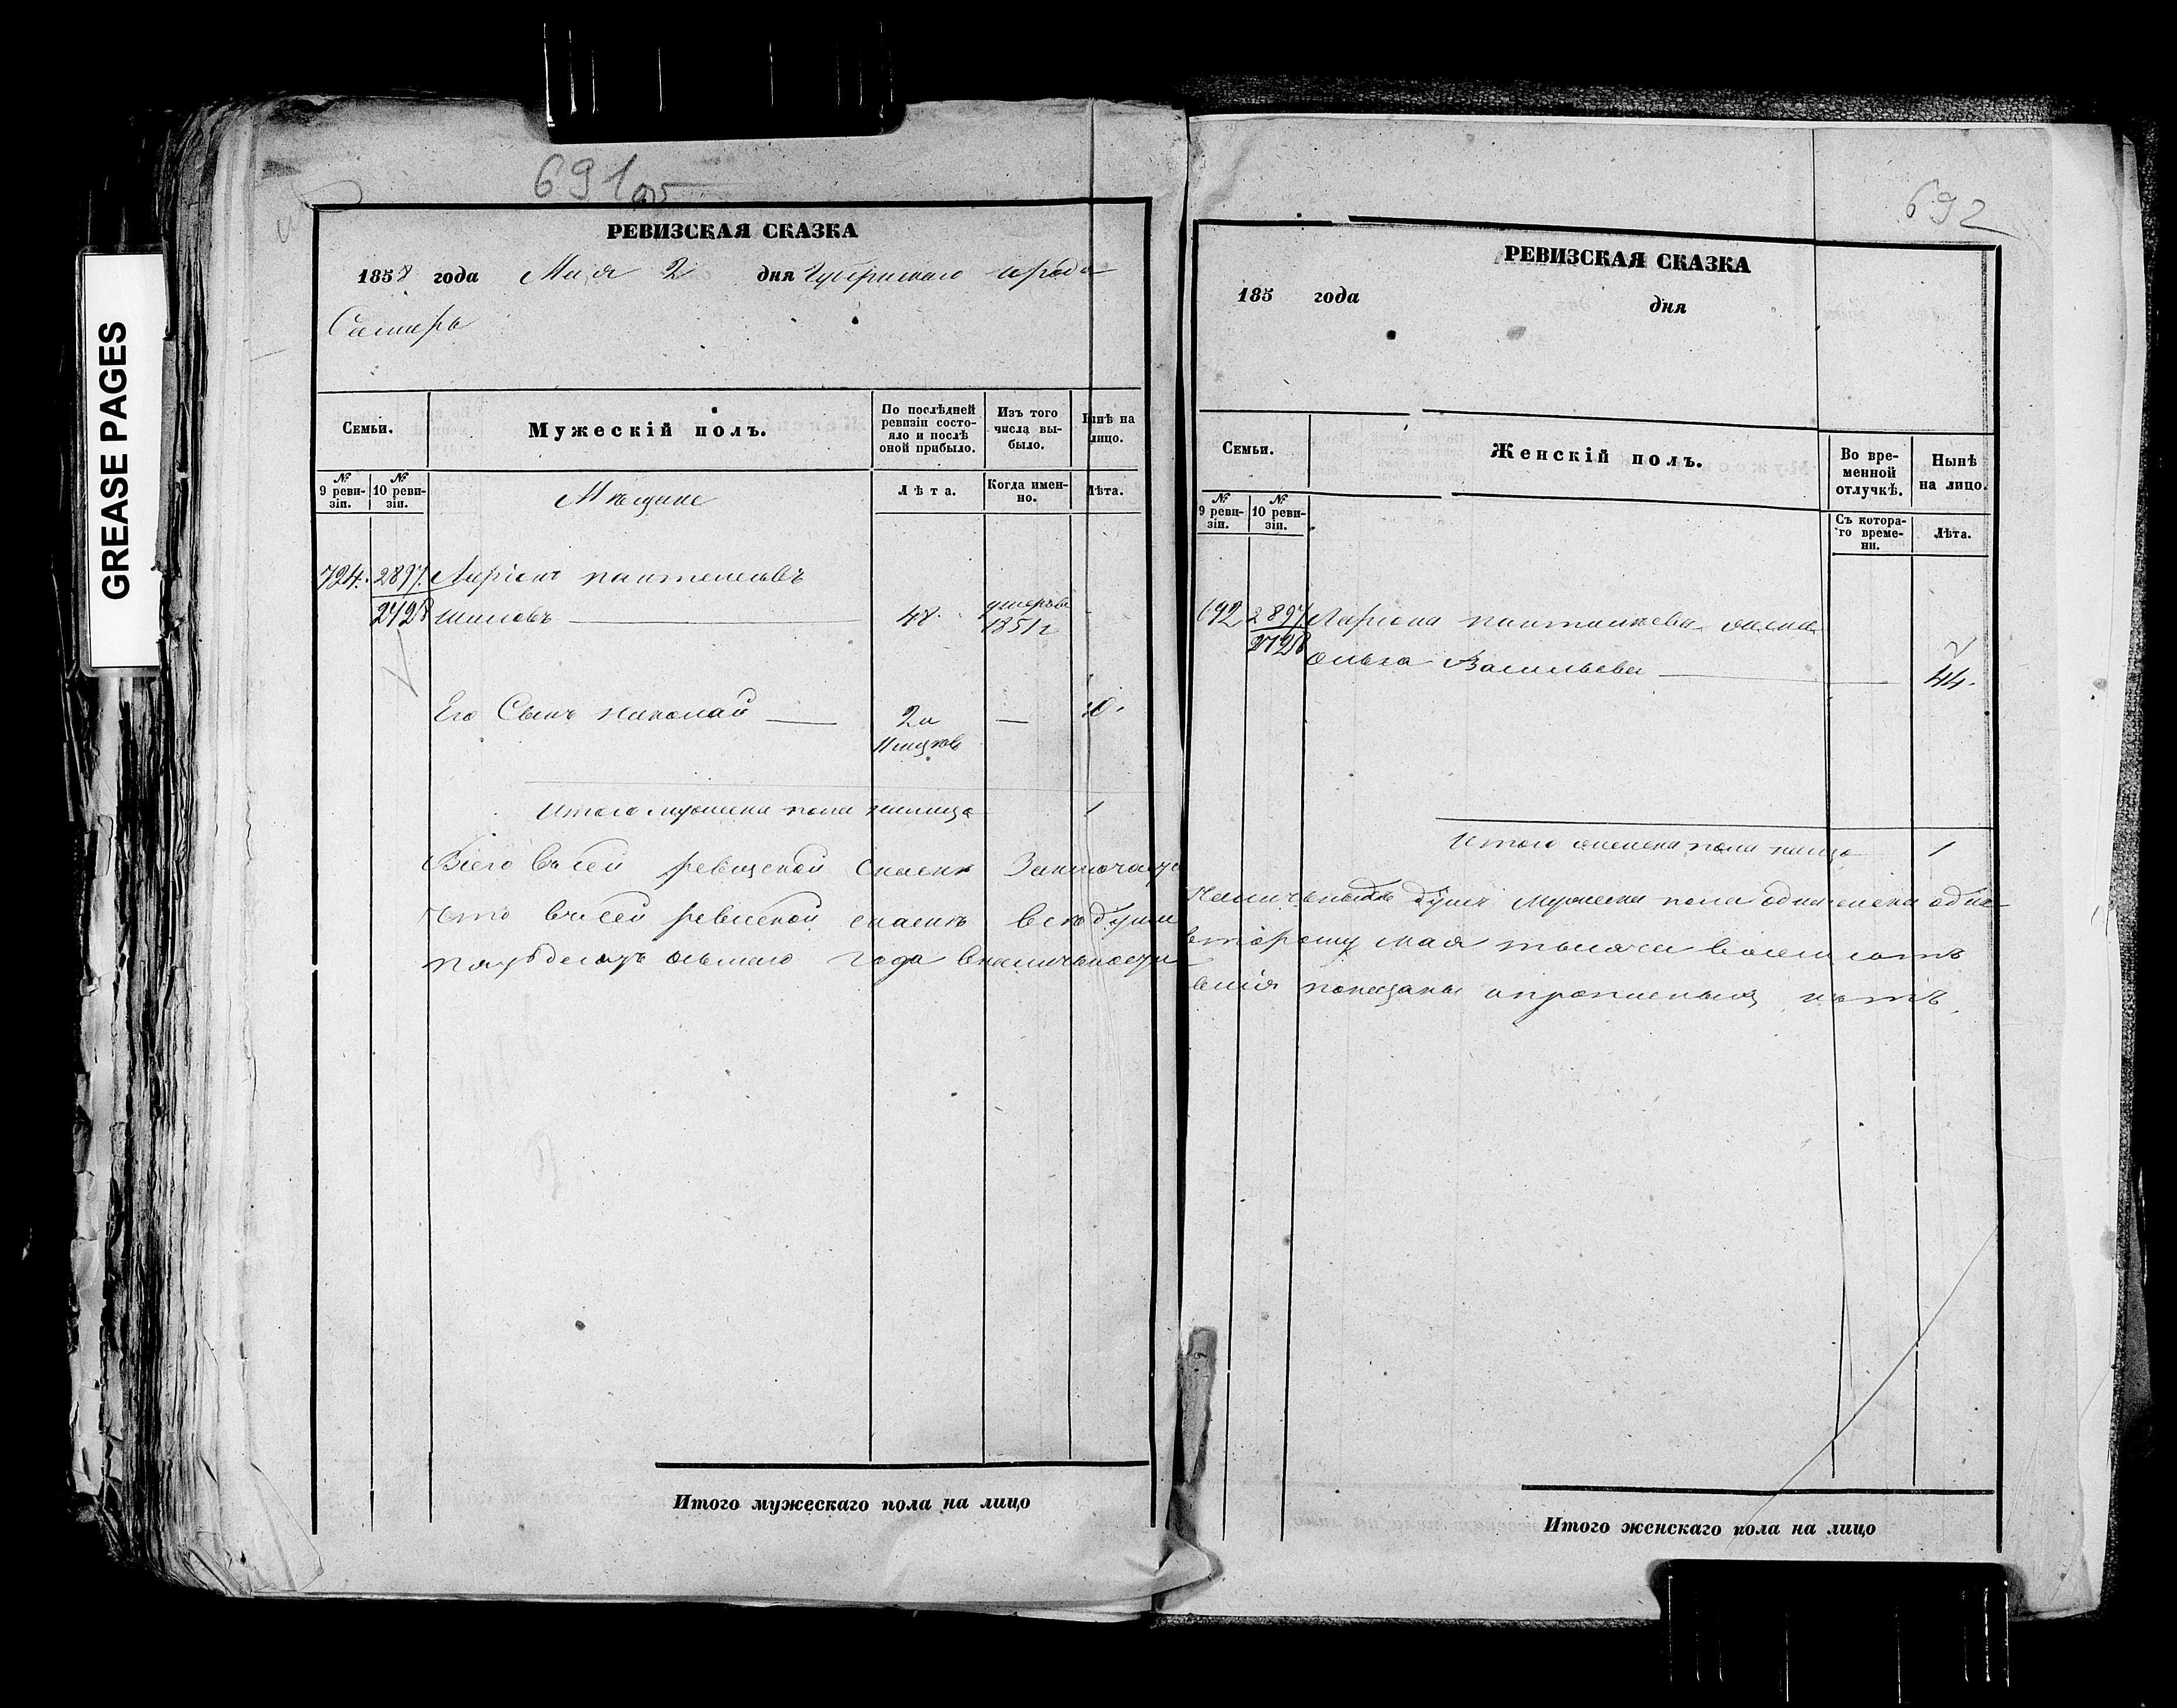 GREASE PAGES
691об
РЕВИЗСКАЯ СКАЗКА
1858 года Мая 2 дня Губернскаго города
Самары
Семьи.
Мужескій полъ.
По послѣдней ревизіи состояло и послѣ оной прибыло.
Изъ того числа выбыло.
Нынѣ на лицо.
№ 9 ревизіи.
№ 10 ревизіи.
Мѣщане
Лѣта.
Когда именно.
Лѣта.
724. 2897. Ларіонъ пантелеевъ
2728 шиловъ 48. умеръ въ 1851 г
Его Сынъ николай — 2 и 11 мцовъ — 10.
Итого мужеска пола налицо 1
Всего въ сей ревизской сказкѣ Заключается
Что въ сей ревиской сказкѣ всѣ души
пятьдесятъ осьмаго года в наличности
692
РЕВИЗСКАЯ СКАЗКА
185 года дня
Семьи.
Женскій полъ.
Во временной отлучкѣ.
Нынѣ на лицо.
№ 9 ревизіи.
№ 10 ревизіи.
Съ котораго времени.
Лѣта.
692 2897 Ларіона пантелеева жена
2728 Ольга Васильева 44.
Итого женска пола налицо 1
Наличныхъ душъ мужеска пола одна женска одна
второму мая тысяча восемсотъ
показаны и прописныхъ нѣтъ.
Итого мужескаго пола на лицо
Итого женскаго пола на лицо